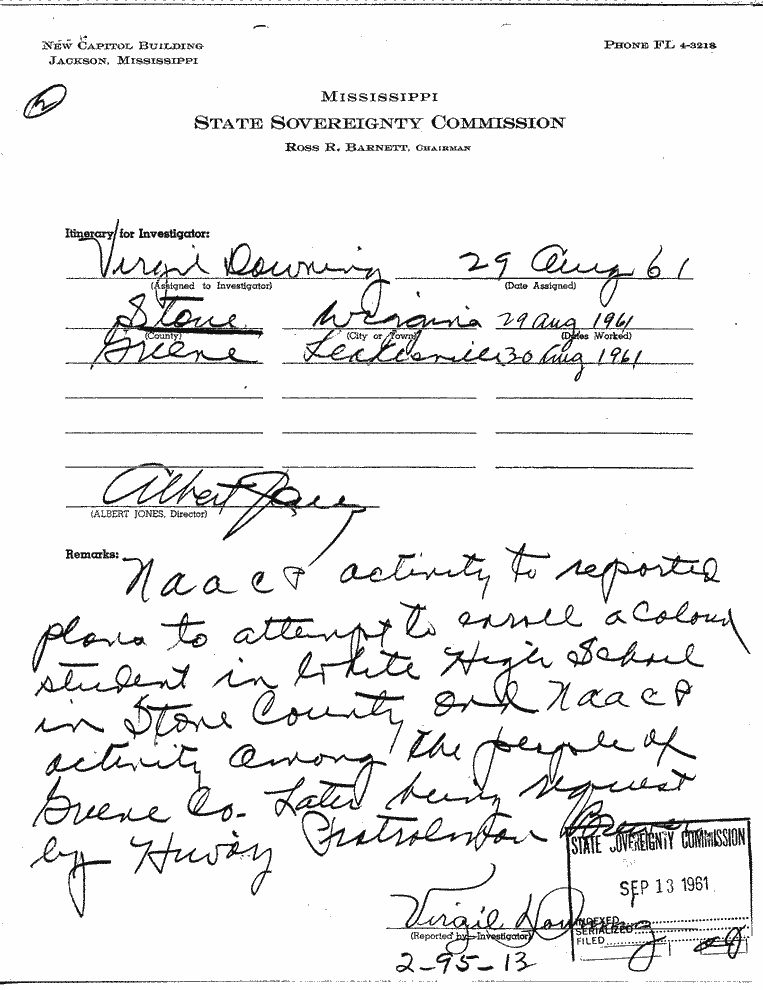 NEW CAPITOL BUILDING
JACKSON, MISSISSIPPI
PHONE FL 4-3218
2
MISSISSIPPI
STATE SOVEREIGNTY COMMISSION
ROSS R. BARNETT, CHAIRMAN
Itinerary for Investigator:
Virgil Downing 29 Aug 61
(Assigned to Investigator) (Date Assigned)
Stone Wiggins 29 Aug 1961
(County) (City or Town) (Dates Worked)
Greene Leakesville 30 Aug 1961
Albert Jones
(ALBERT JONES, Director)
Remarks:
NAACP activity to reported
plans to attempt to enroll a colored
student in White High School
in Stone County and NAACP
activity among the people of
Greene Co. Later being request
by Hiway Patrolman
STATE SOVEREIGNTY COMMISSION
SEP 13 1961
Virgil Downing
(Reported by—Investigator)
INDEXED
SERIALIZED
FILED
2-95-13